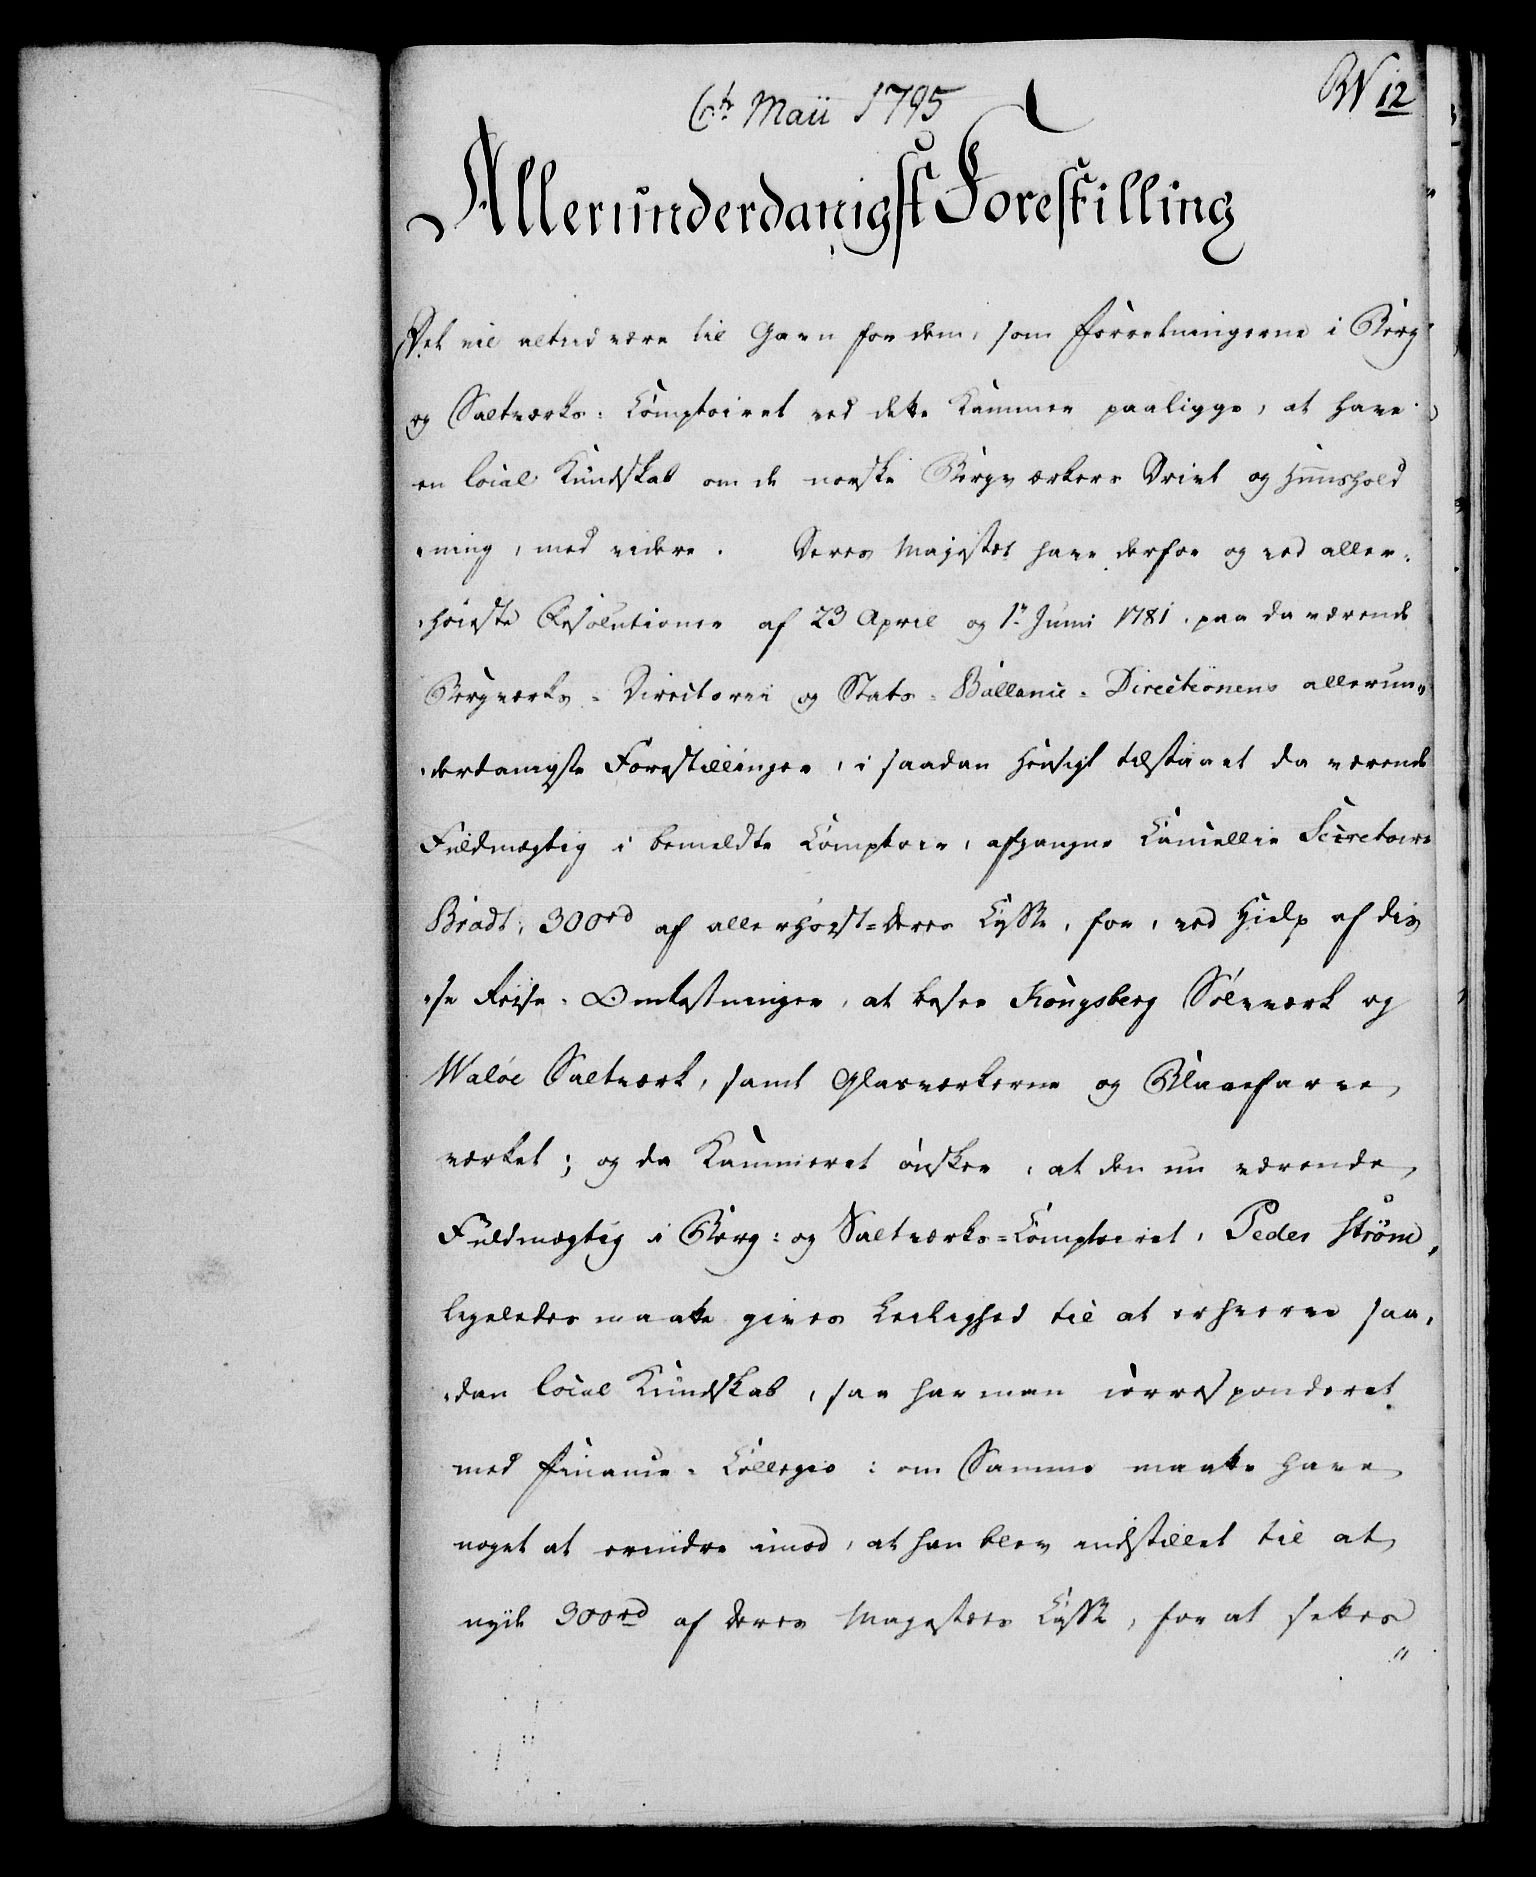 6te Maii 1795
BW 12
Allerunderdanigst Forestilling
Det vil altid være til Gavn for dem, som Forretningerne i Berg-
og Saltværks-Comptoiret ved dette Kammer paaligge, at have
en local Kundskab om de norske Bergværkers Drivt og Huushold
ning, med videre. Deres Majestæt have derfor og ved aller-
høieste Resolutioner af 23 April og 1te Junii 1781 paa da værende
Bergværks-Directorii og Stats-Ballance-Directionens allerun-
derdanigste Forestillinger, i saadan Hensigt tilstaaet da værende
Fuldmægtig i bemeldte Comptoir, afgangne Cancellie Secretaire
Bradt, 300rd af allerhøist-Deres Casse, for, ved Hielp af dis
se Reise-Omkostninger, at besee Kongsberg Sølvværk og
Waløe Saltværk, samt Glasværkerne og Blaaefarve
værket; og da Kammeret ønsker, at den nu værende
Fuldmægtig i Berg- og Saltværks-Comptoiret, Peder Strøm,
ligeledes maatte gives Leilighed til at erhverve saa-
dan local Kundskab, saa har man correspondceret
med Finance-Collegio: om Samme maatte have
noget at erindre imod, at han blev indstillet til at
nyde 300rd af Deres Majestæts Casse, for at sættes